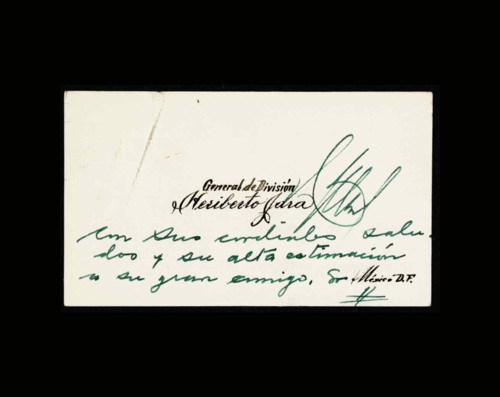 General de División
Heriberto Jara
con sus cordiales salu-
dos y su alta estimación
a su gran amigo, Sr
México D.F.